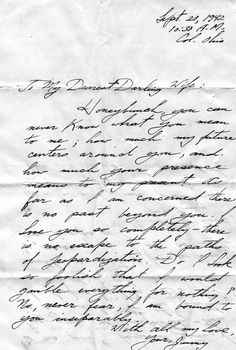 Sept. 20, 1942
10:30 A.M.
Col. Ohio
To My Dearest Darling Wife:
Honeybunch you can
never know what you mean
to me; how much my future
centers around you, and
how much your presence
means to my present. As
far as I am concerned there
is no past beyond you. I
love you so completely - there
is no escape to the paths
of jeopardization. Do I look
so foolish that I would
gamble everything for nothing?
No, never fear. I am bound to
you inseparably.
With all my love,
Your Jimmy